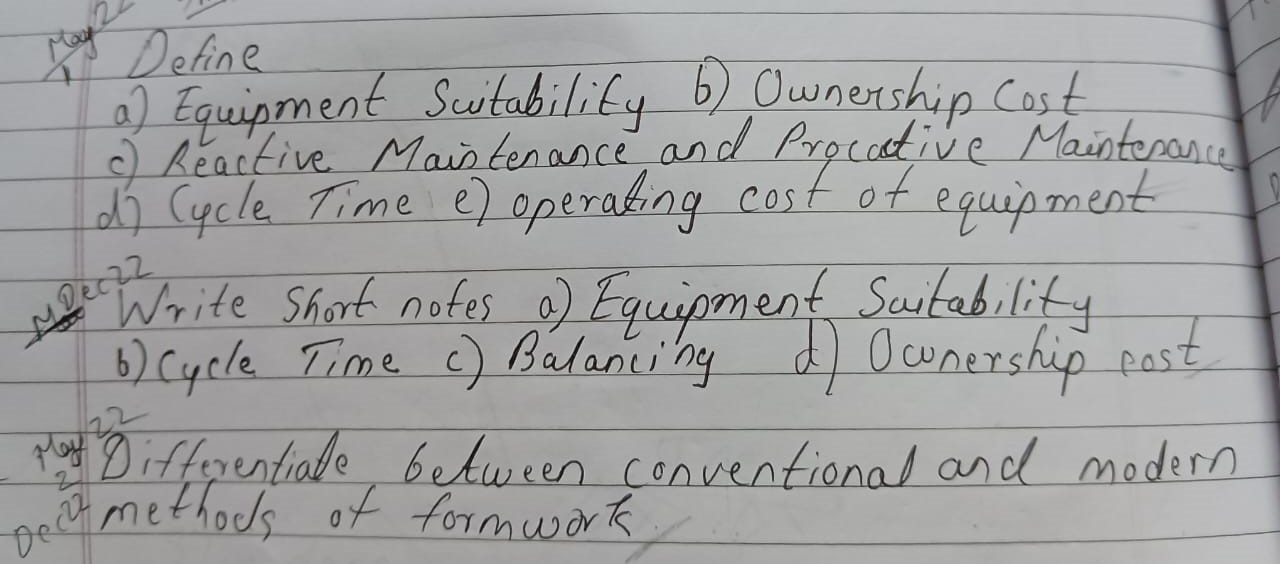 May 22
1 Define
a) Equipment Suitability b) Ownership Cost
c) Reactive Maintenance and Procative Maintenance
d) Cycle Time e) operating cost of equipment
Dec 22
Write Short notes a) Equipment Suitability
b) Cycle Time c) Balancing d) Ownership cost
May 22
2 Differentiate between conventional and modern
Dec 22 methods of formwork